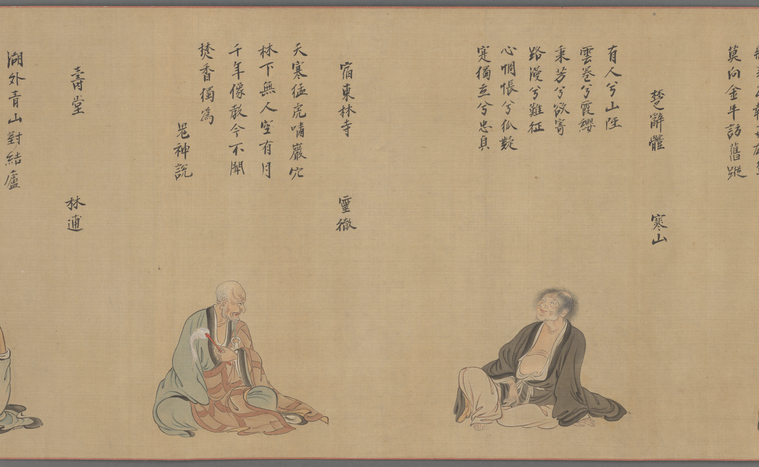 莫向金牛訪舊蹤
楚辭體 寒山
有人兮山陘
雲卷兮霞纓
秉芳兮欲寄
路漫兮難征
心惆悵兮狐疑
蹇獨立兮忠貞
宿東林寺 靈徹
天寒猛虎嘯巖穴
林下無人空有月
千年像教今不聞
焚香獨為
鬼神說
壽堂 林逋
湖外青山對結廬